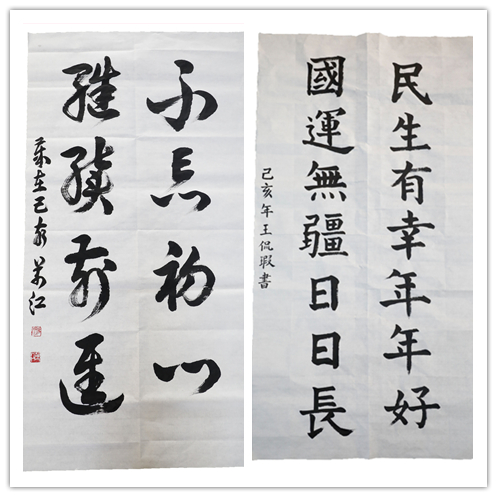 不忘初心
繼續前進
歲在己亥 景江
民生有幸年年好
國運無疆日日長
己亥年王侃瑕書